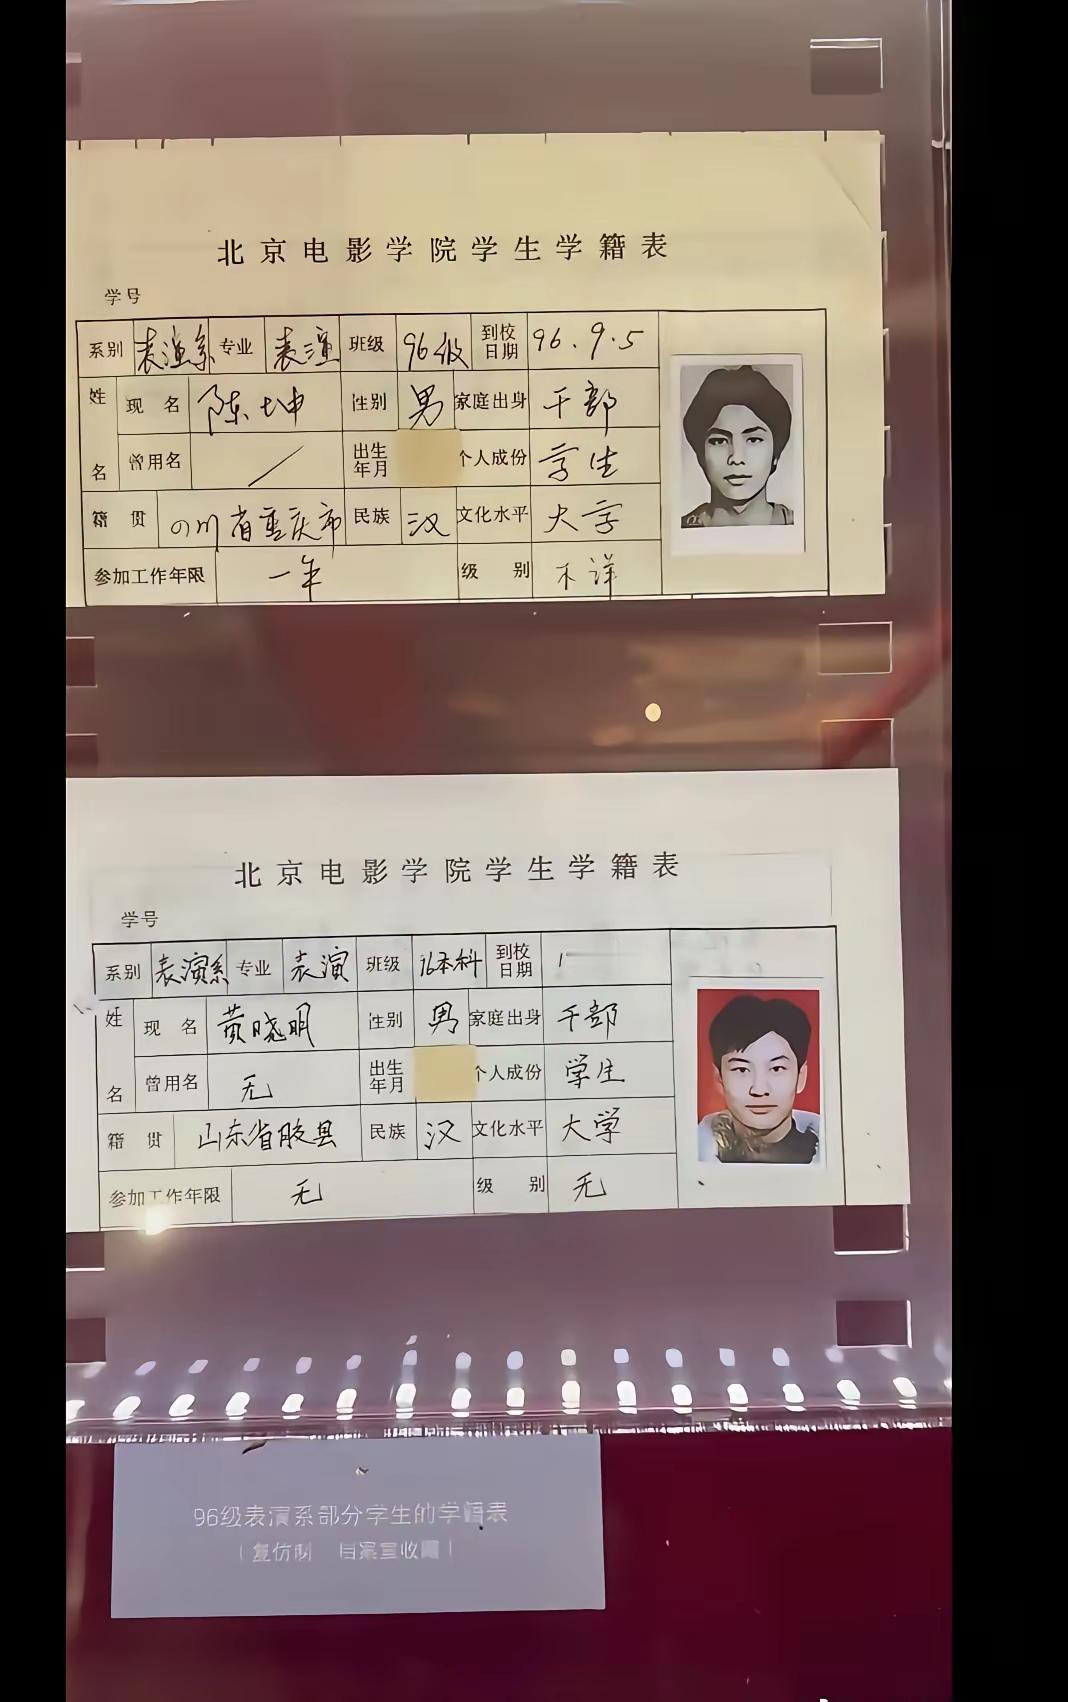 北京电影学院学生学籍表
学号
系别 表演系 专业 表演 班级 96级 到校日期 96.9.5
姓名 现名 陈坤 性别 男 家庭出身 干部
曾用名 / 出生年月 个人成份 学生
籍贯 四川省重庆市 民族 汉 文化水平 大学
参加工作年限 一年 级别 不详
北京电影学院学生学籍表
学号
系别 表演系 专业 表演 班级 96本科 到校日期
姓名 现名 黄晓明 性别 男 家庭出身 干部
曾用名 无 出生年月 个人成份 学生
籍贯 山东省胶县 民族 汉 文化水平 大学
参加工作年限 无 级别 无
96级表演系部分学生的学籍表
(复仿制 档案室收藏)